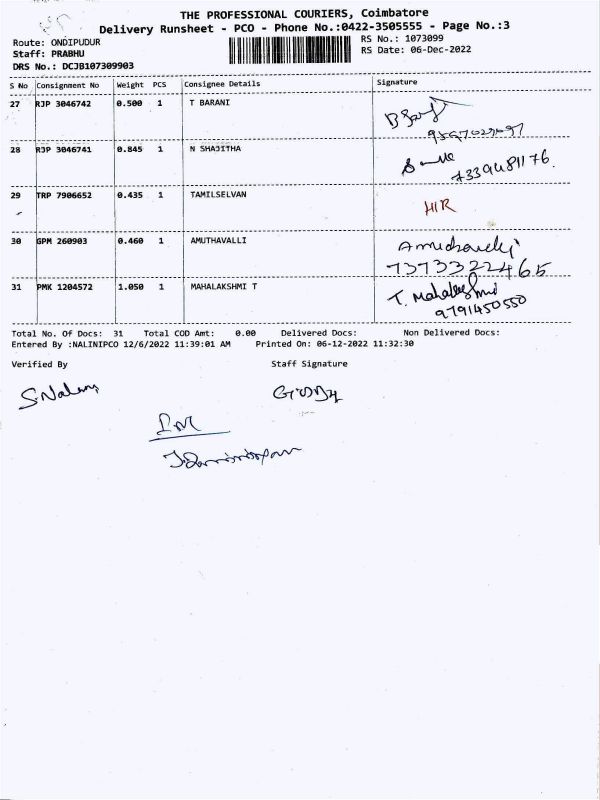 THE PROFESSIONAL COURIERS, Coimbatore
Delivery Runsheet - PCO - Phone No.:0422-3505555 - Page No.:3
Route: ONDIPUDUR RS No.: 1073099
Staff: PRABHU RS Date: 06-Dec-2022
DRS No.: DCJB107309903
S No Consignment No Weight PCS Consignee Details Signature
27 RJP 3046742 0.500 1 T BARANI
28 RJP 3046741 0.845 1 N SHAJITHA
7339481176
29 TRP 7906652 0.435 1 TAMILSELVAN
H/R
30 GPM 260903 0.460 1 AMUTHAVALLI
7373322465
31 PMK 1204572 1.050 1 MAHALAKSHMI T
T. Mahalakshmi
9791450550
Total No. Of Docs: 31 Total COD Amt: 0.00 Delivered Docs: Non Delivered Docs:
Entered By :NALINIPCO 12/6/2022 11:39:01 AM Printed On: 06-12-2022 11:32:30
Verified By Staff Signature